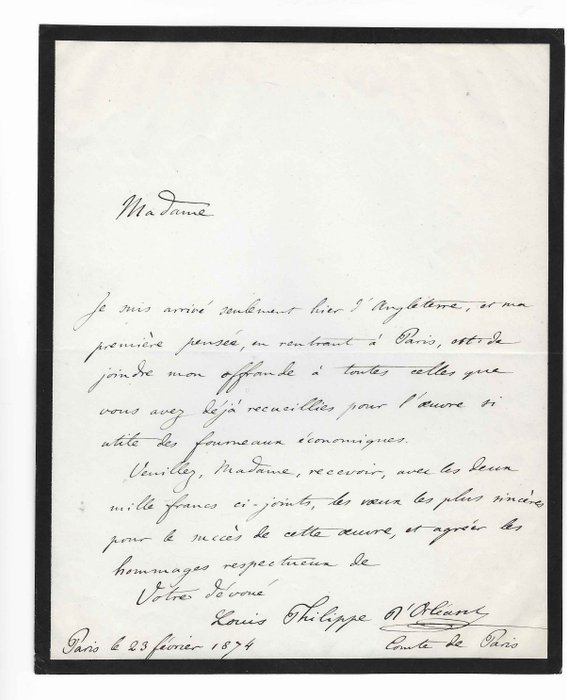 Madame
Je suis arrivé seulement hier d'Angleterre, et ma
première pensée, en rentrant à Paris, est de
joindre mon offrande à toutes celles que
vous avez déjà recueillies pour l'œuvre si
utile des fourneaux économiques.
Veuillez, Madame, recevoir, avec les deux
mille francs ci-joints, les vœux les plus sincères
pour le succès de cette œuvre, et agréer les
hommages respectueux de
Votre dévoué
Louis Philippe d'Orléans
Comte de Paris
Paris le 23 février 1874